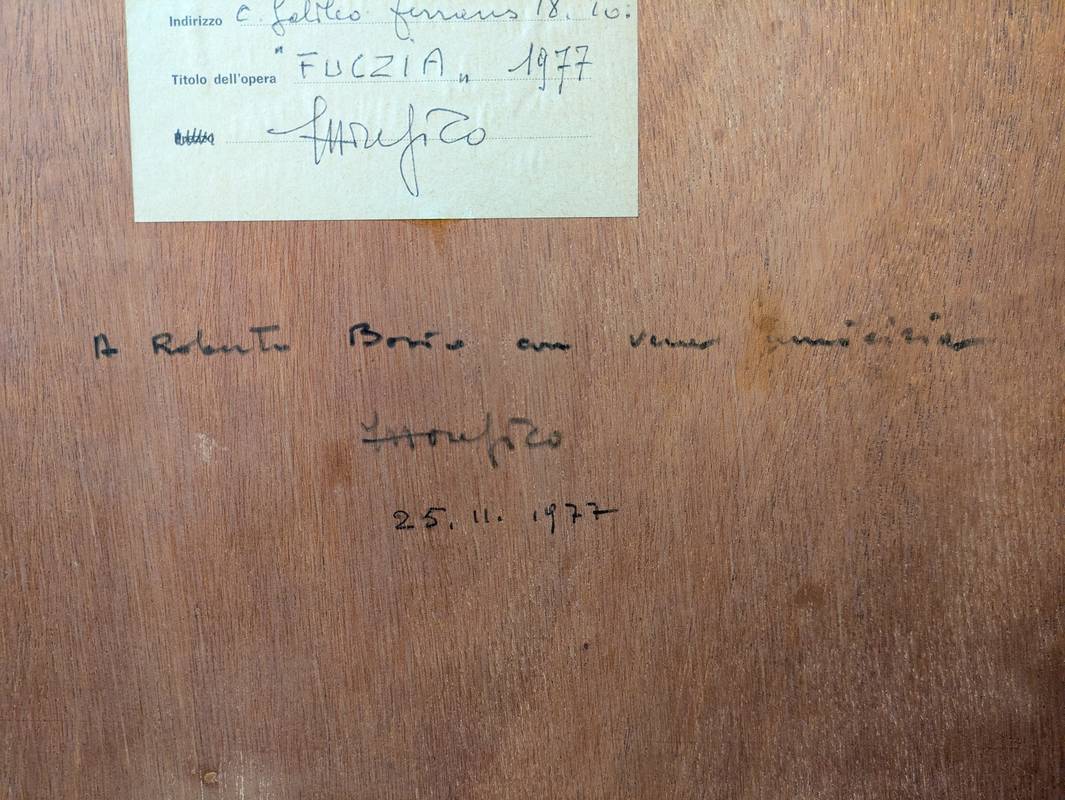 Indirizzo C. Galileo Ferraris 18. To.
Titolo dell'opera "FUCZIA" 1977
Prezzo
A Roberto Bosio con vera amicizia
25. 11. 1977